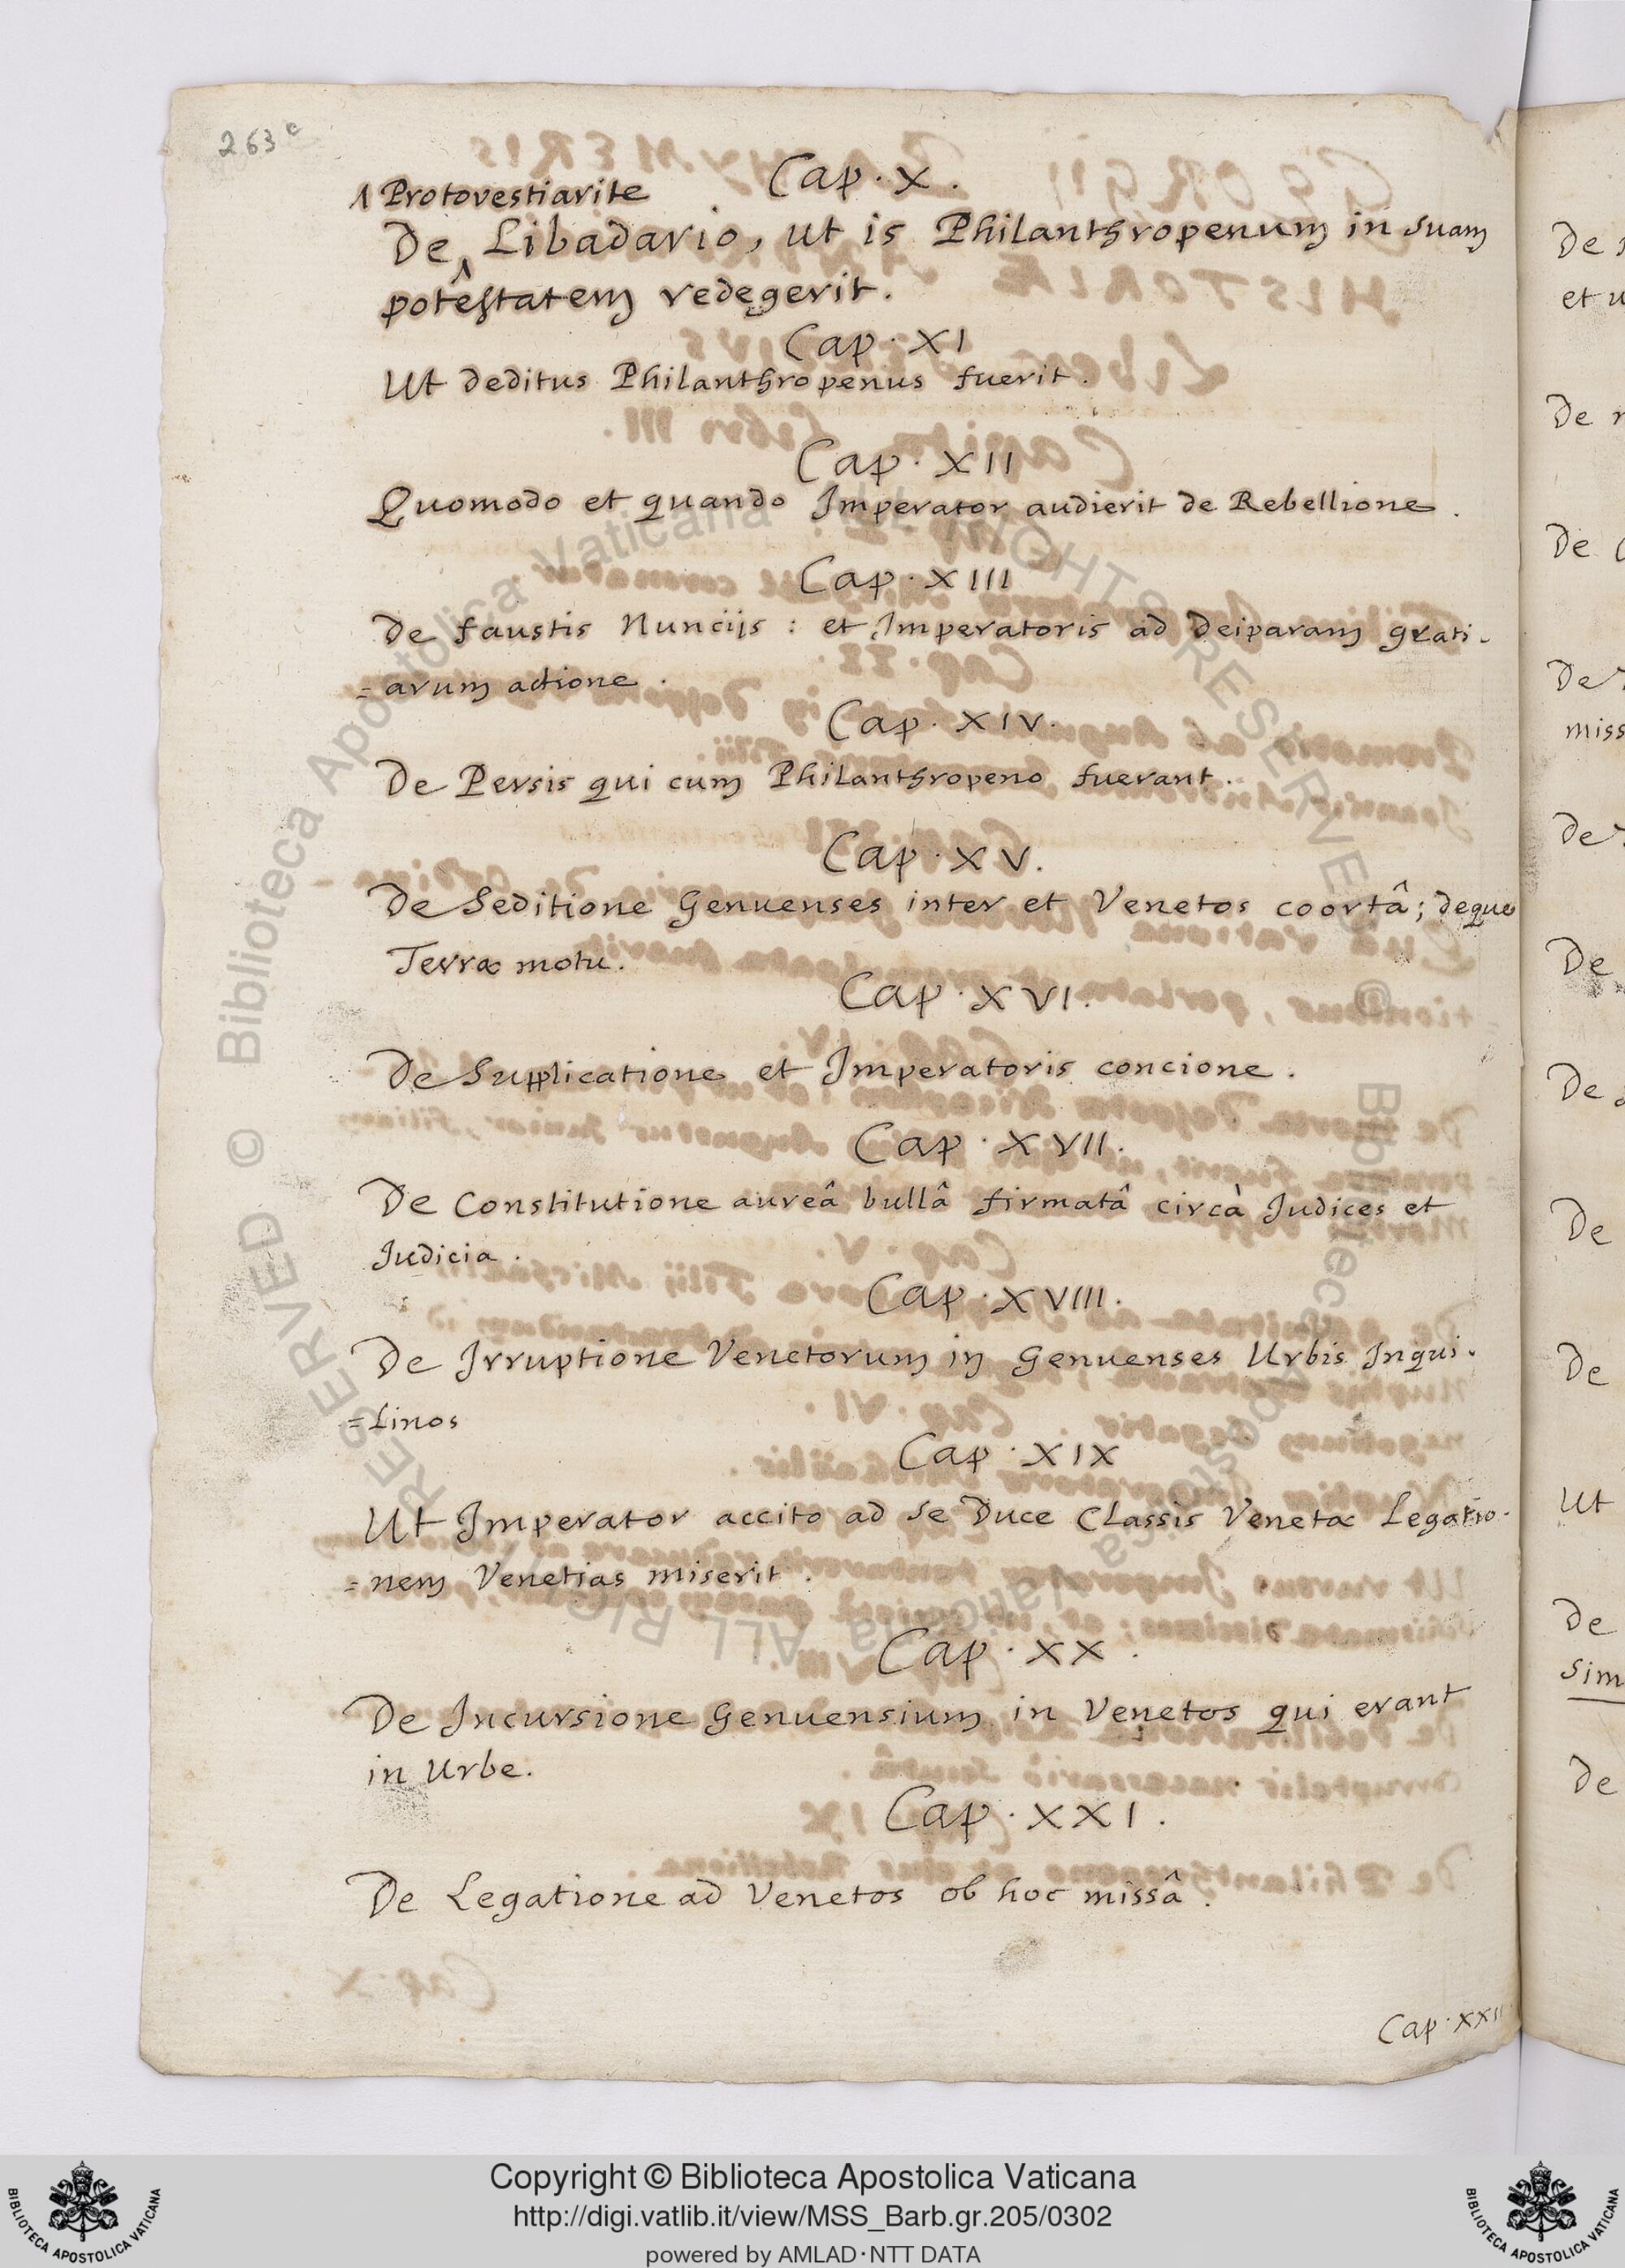 263c
Cap. X.
∧ Protovestiarite
De ∧ Libadario, ut is Philanthropenum in suam
potestatem redegerit.
Cap. XI
Ut deditus Philanthropenus fuerit.
Cap. XII
Quomodo et quando Imperator audierit de Rebellione.
Cap. XIII
De faustis Nuncijs: et Imperatoris ad Deiparam grati-
=arum actione.
Cap. XIV.
De Persis qui cum Philanthropeno fuerant.
Cap. XV.
De Seditione Genuenses inter et Venetos coortâ; deque
Terræ motu.
Cap. XVI.
De Supplicatione et Imperatoris concione.
Cap. XVII.
De Constitutione aureâ bullâ firmatâ circà Judices et
Judicia.
Cap. XVIII.
De Irruptione Venetorum in Genuenses Urbis Inqui-
=linos
Cap. XIX
Ut Imperator accito ad se Duce Classis Venetæ Legatio-
=nem Venetias miserit.
Cap. XX.
De Incursione Genuensium in Venetos qui erant
in Urbe.
Cap. XXI.
De Legatione ad Venetos ob hoc missâ.
Cap. XXII
De
et u
De
De
De
miss
De
De
De
De
De
Ut
De
Sim
De
© Biblioteca Apostolica Vaticana ALL RIGHTS RESERVED
© Biblioteca Apostolica Vaticana ALL RIGHTS RESERVED
BIBLIOTECA APOSTOLICA VATICANA
Copyright © Biblioteca Apostolica Vaticana
http://digi.vatlib.it/view/MSS_Barb.gr.205/0302
powered by AMLAD·NTT DATA
BIBLIOTECA APOSTOLICA VATICANA